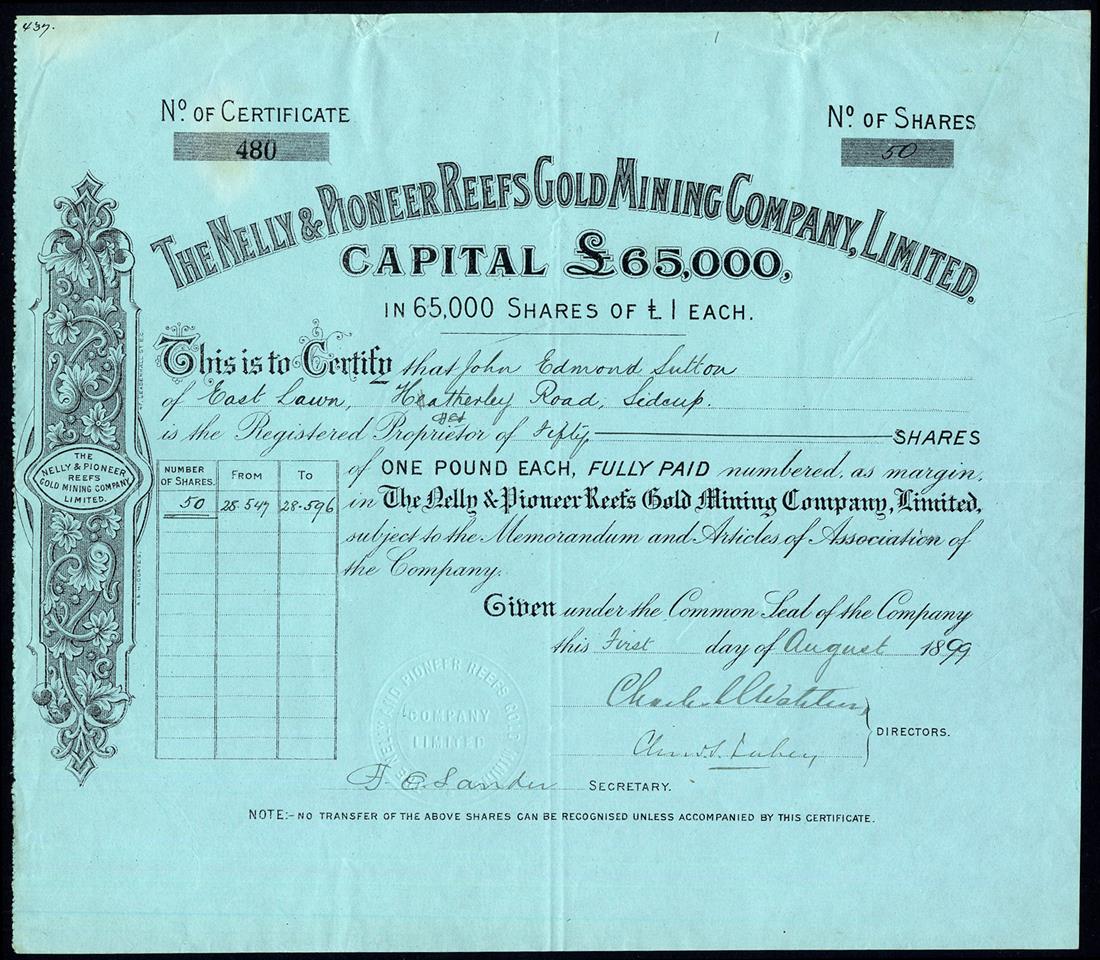 437.
Nº OF CERTIFICATE
480
Nº OF SHARES
50
THE NELLY & PIONEER REEFS GOLD MINING COMPANY, LIMITED.
CAPITAL £65,000,
IN 65,000 SHARES OF £1 EACH.
This is to Certify that John Edmond Sutton
of East Lawn, Heatherley Road, Sidcup.
is the Registered Proprietor of Fifty SHARES
of ONE POUND EACH, FULLY PAID numbered, as margin,
in The Nelly & Pioneer Reefs Gold Mining Company, Limited,
subject to the Memorandum and Articles of Association of
the Company.
NUMBER OF SHARES. FROM TO
50 28.547 28.596
THE
NELLY & PIONEER
REEFS
GOLD MINING COMPANY
LIMITED.
Given under the Common Seal of the Company
this First day of August 1899
DIRECTORS.
NELLY AND PIONEER REEFS GOLD MINING
COMPANY
LIMITED
SECRETARY.
NOTE:- NO TRANSFER OF THE ABOVE SHARES CAN BE RECOGNISED UNLESS ACCOMPANIED BY THIS CERTIFICATE.